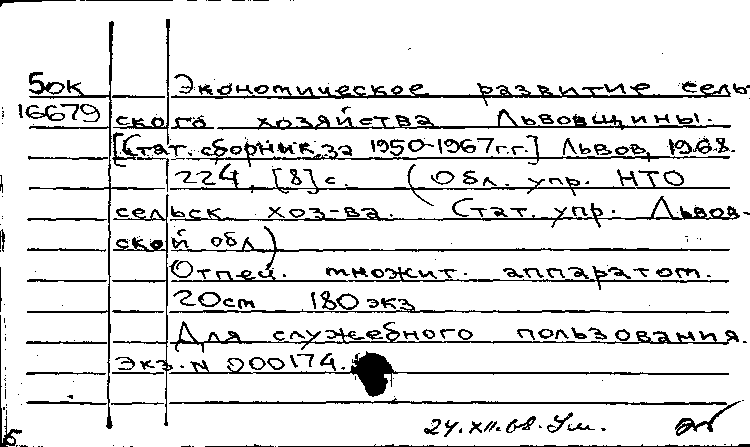 5ок Экономическое развитие сель-
16679 ского хозяйства Львовщины.
[Стат. сборник за 1950-1967г.г.] Львов, 1968.
224, [8] с. (Обл. упр. НТО
сельск. хоз-ва. Стат. упр. Львов-
ской обл)
Отпеч. множит. аппаратом.
20cm 180 экз
Для служебного пользования.
Экз. N 000174.
24.XII.68.